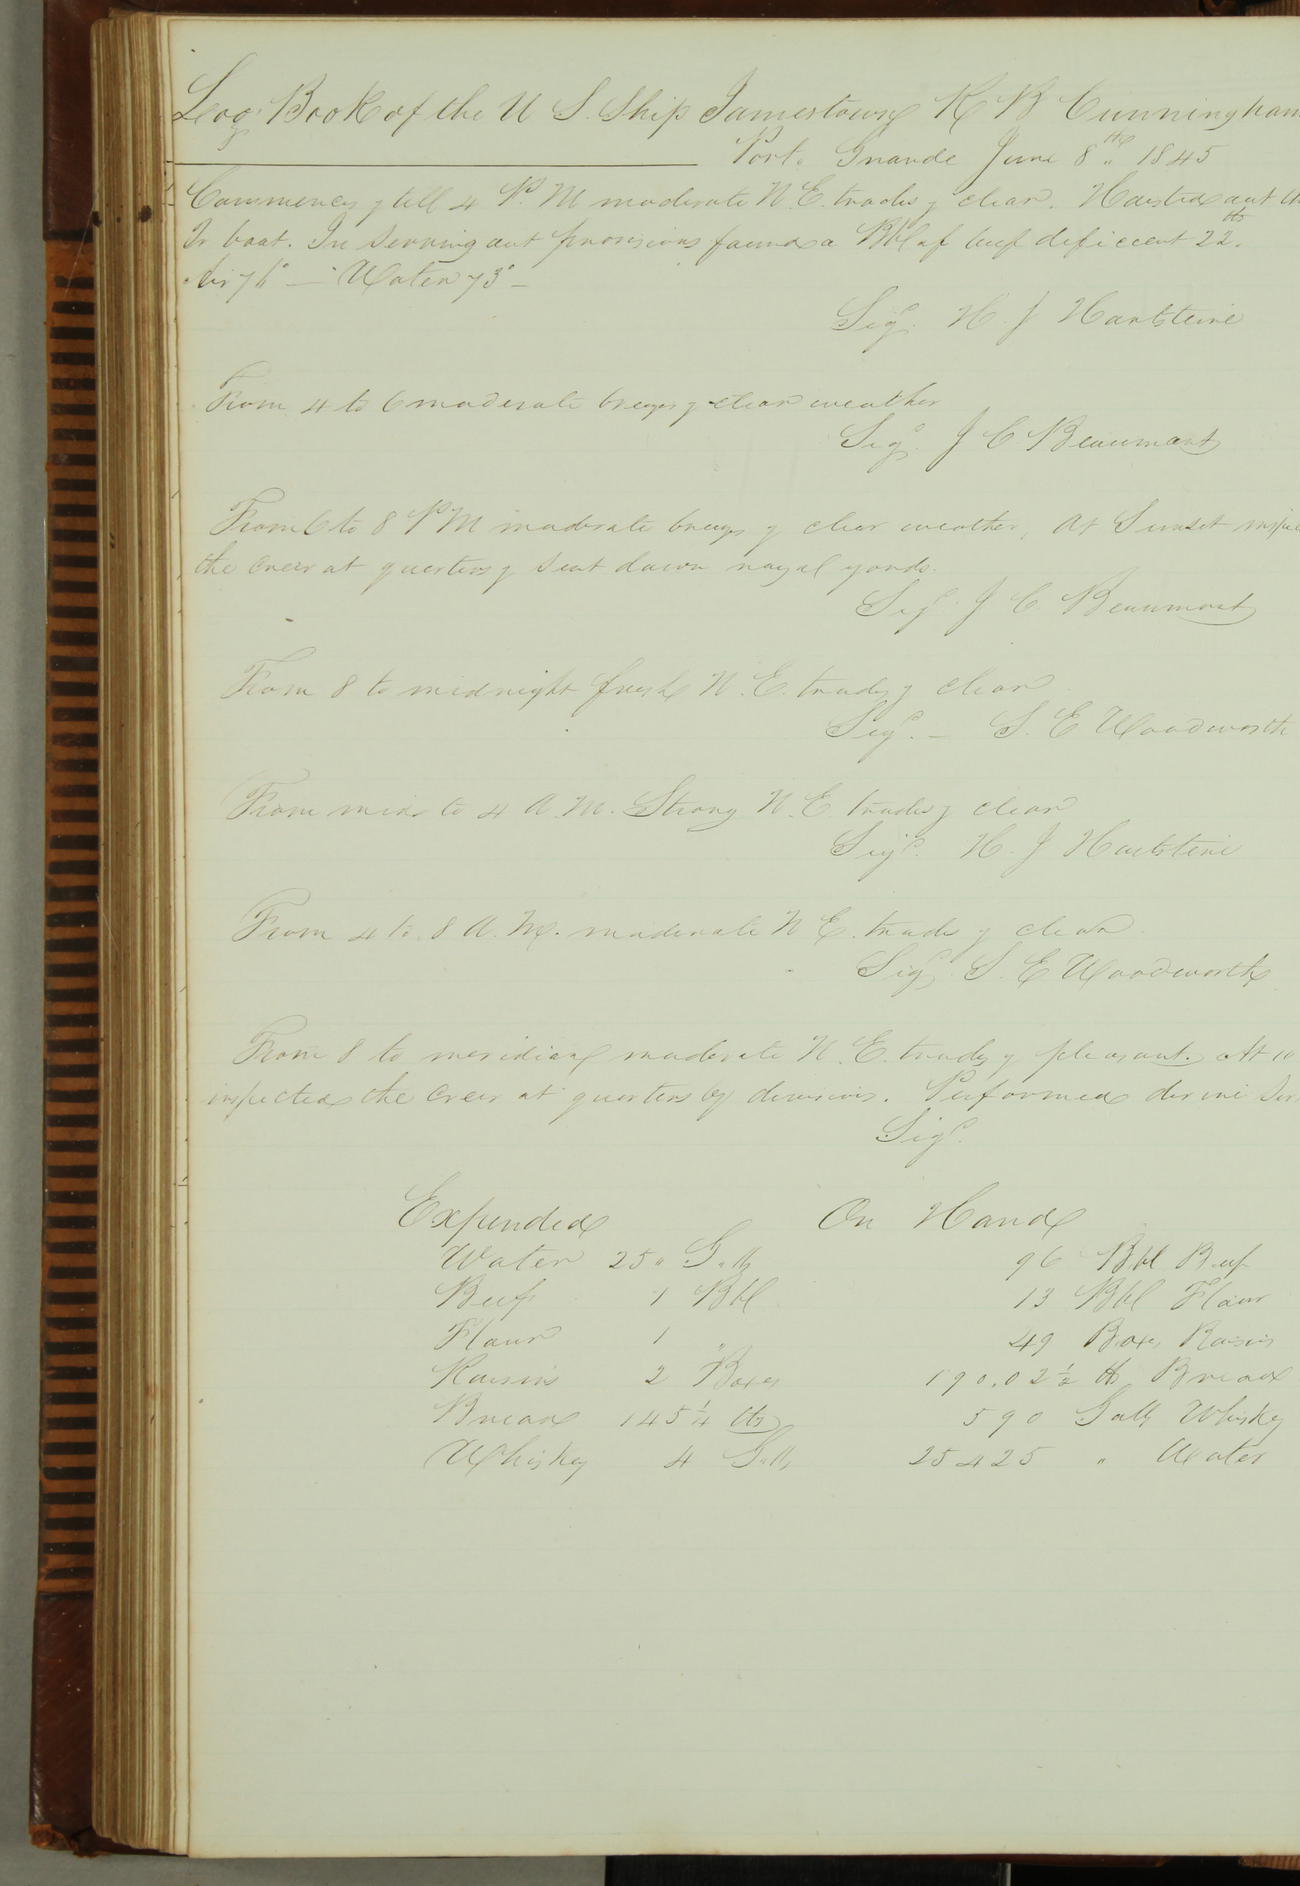 Log Book of the U S. Ship Jamestown R B Cunningham
Port Grande June 8th 1845
Commences & till 4 P. M moderate N. E. trades & clear. Hoisted out the
Lr boat. In serving out provisions found a Bbl of beef deficient 22 lbs.
Air 76° — Water 73° —
Sigd. H. J Hartstene
From 4 to 6 moderate breezes & clear weather
Sigd. J C Beaumont
From 6 to 8 P M moderate breezes & clear weather, At Sunset
the crew at quarters & sent down royal yards.
Sigd. J C Beaumont
From 8 to midnight fresh N. E. trades & clear
Sigd. — S. E Woodworth
From mid to 4 A. M. Strong N. E. trades & clear
Sigd. H. J Hartstene
From 4 to 8 A. M. moderate N E. trades & clear
Sigd. S. E Woodworth
From 8 to meridian moderate N. E. trades & pleasant. At 10
inspected the crew at quarters by divisions. Performed divine
Sigd.
Expended On Hand
Water 250 Galls 96 Bbl Beef
Beef 1 Bbl 13 Bbl Flour
Flour 1 " 49 Boxes Raisins
Raisins 2 Boxes 190.02½ lbs Bread
Bread 145¼ lbs 590 Galls Whiskey
Whiskey 4 Galls 25425 " Water